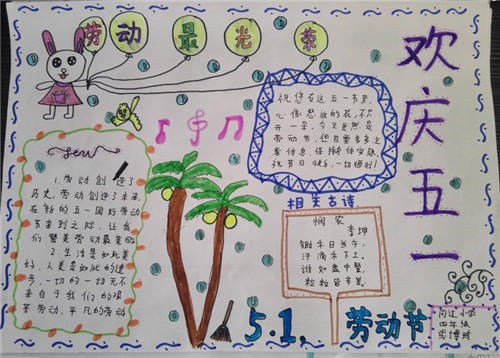 劳动最光荣
欢庆五一
祝您在这五一节里,
心像怒放的花,不只
开一朵,今天虽然是
劳动节,但且要多多注
意休息,保持身体安康
祝节日快乐,一切顺利!
1.劳动创造了
历史,劳动创造了未来,
在新的五一国际劳动
节来到之际,让我
们赞美劳动最美丽
2.生活是如此美
好,人类是如此的进
步,一切的一切无不
来自于我们的艰
苦劳动、平凡的劳动
相关古诗
悯农
锄禾日当午,
汗滴禾下土,
谁知盘中餐,
粒粒皆辛苦.
5.1.劳动节
小学
四年级